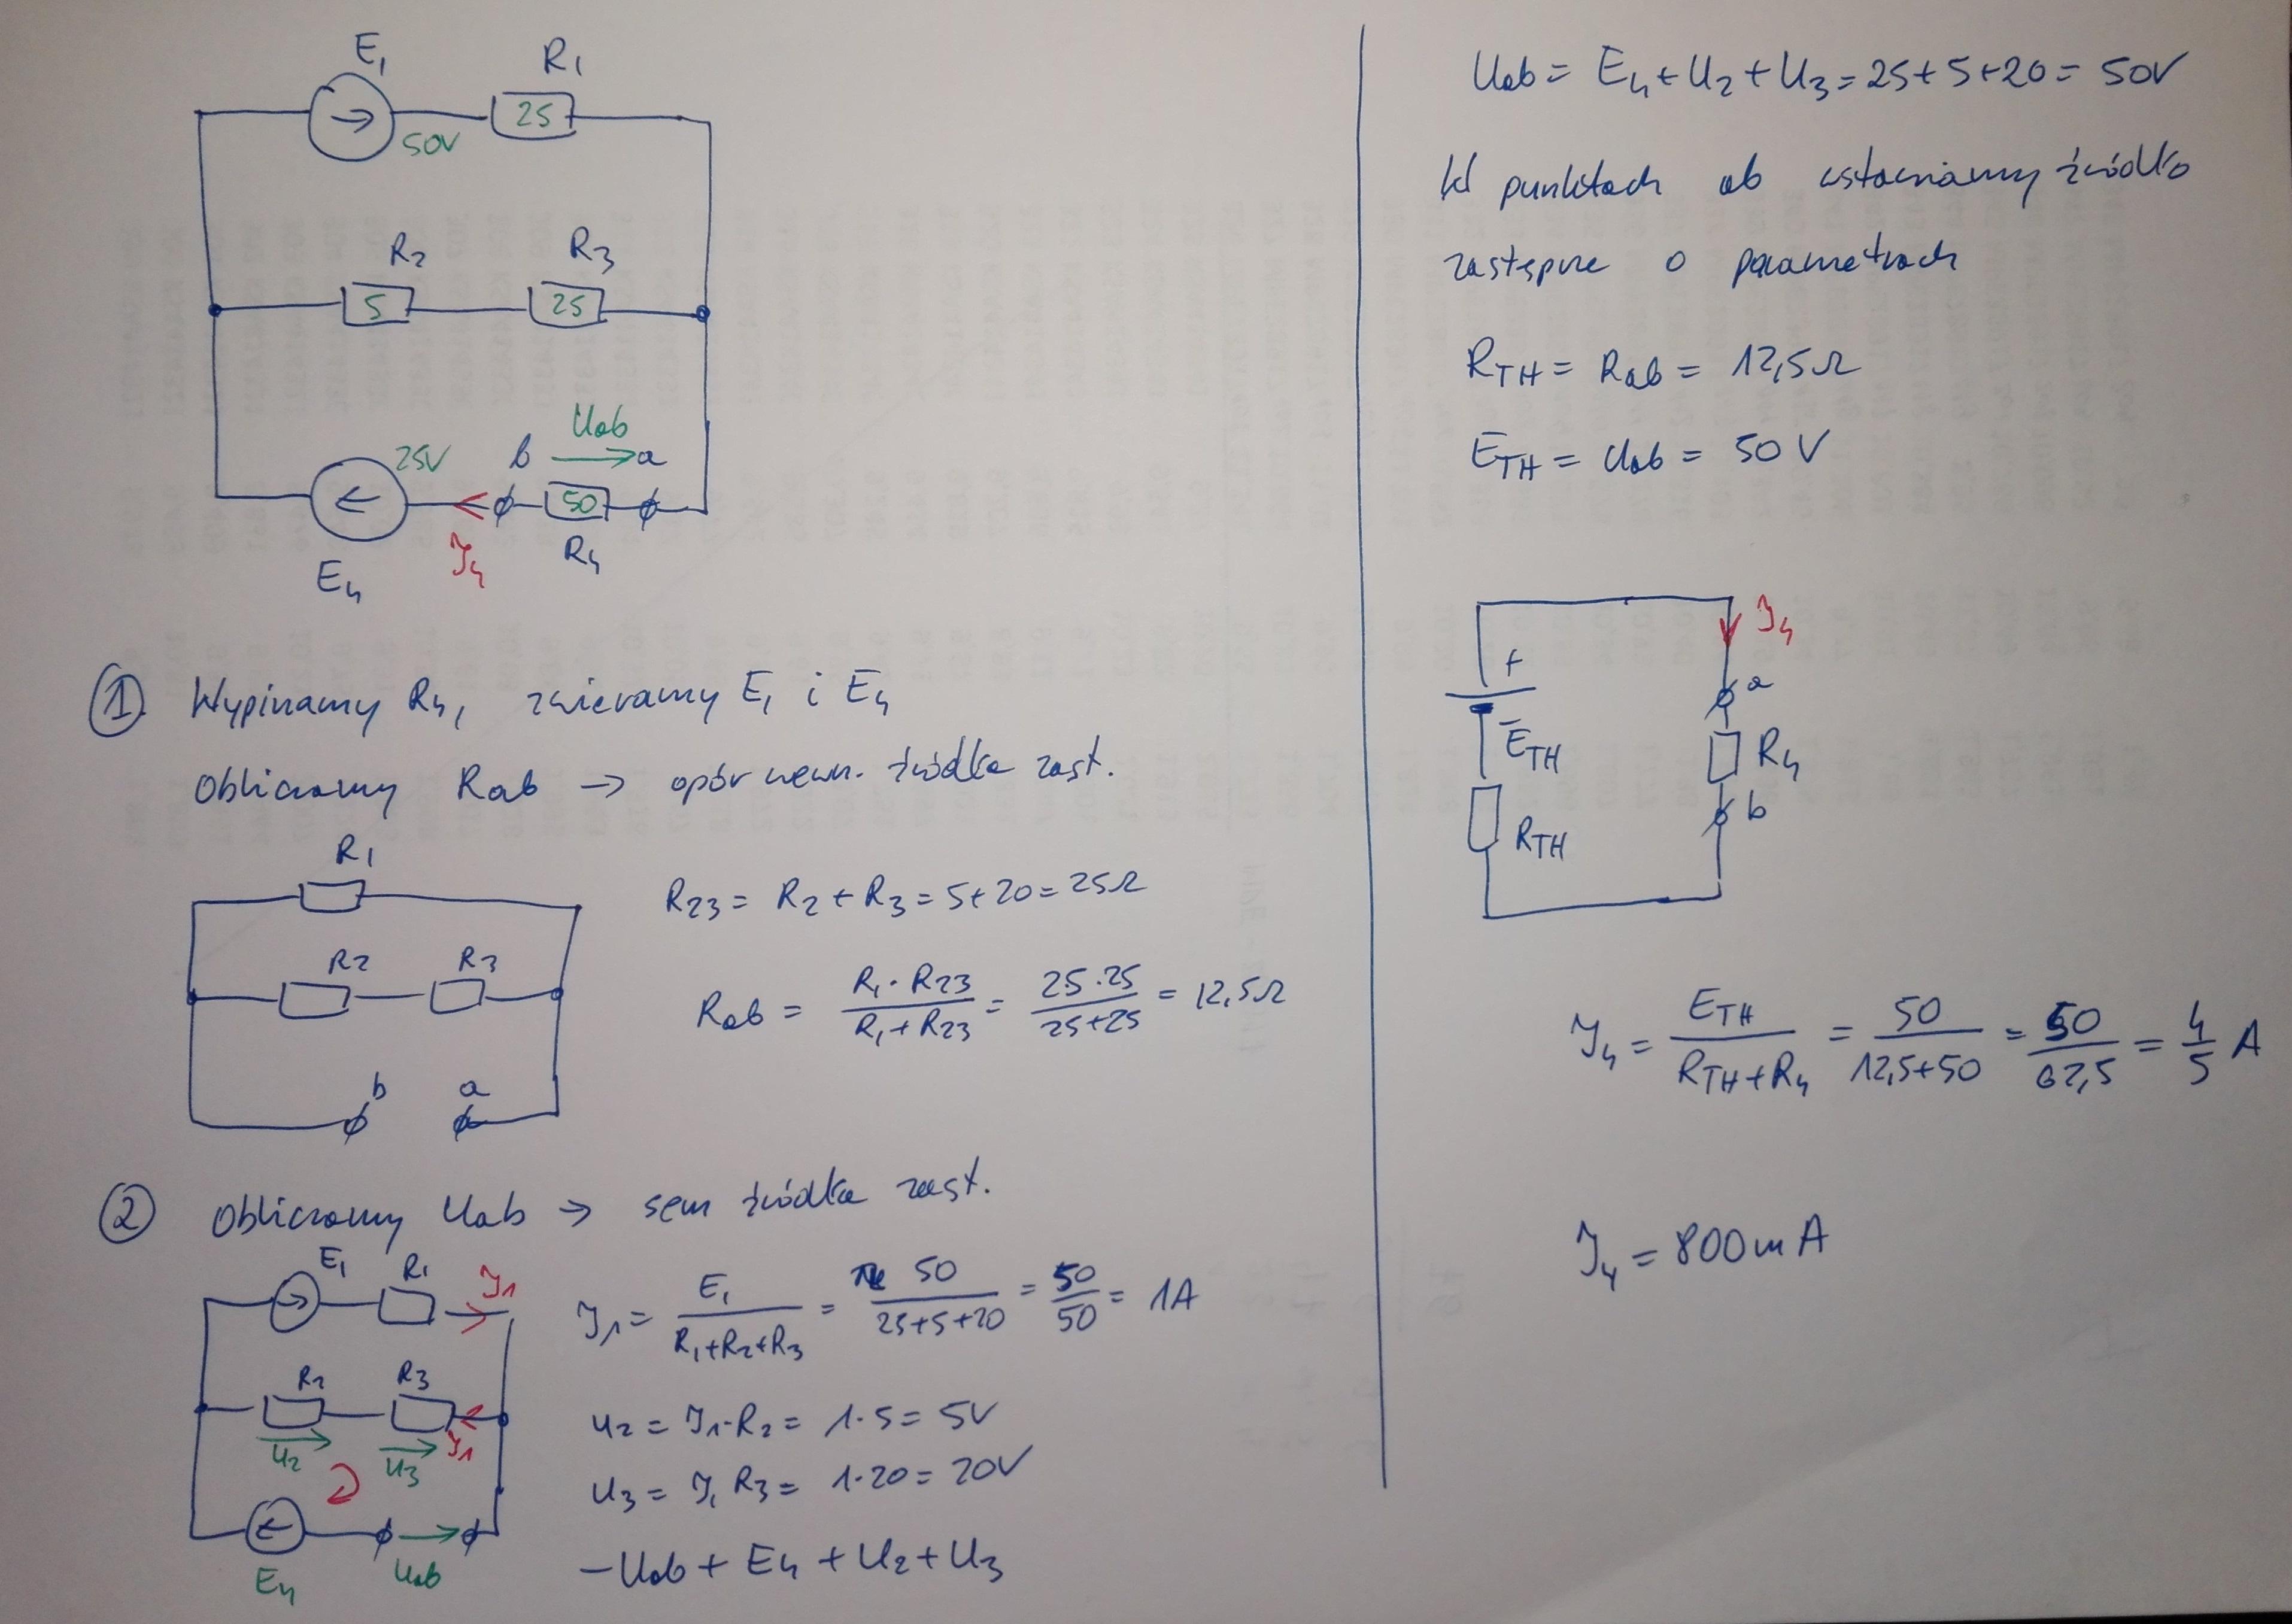 E₁ R₁
25
50V
R₂ R₃
5 25
Uab
25V b a
50
I₄ R₄
E₄
① Wypinamy R₄, zwieramy E₁ i E₄
Obliczamy Rab → opór wewn. źródła zast.
R₁
R₂ R₃
b a
R₂₃ = R₂ + R₃ = 5+20 = 25Ω
Rab = R₁·R₂₃ / R₁+R₂₃ = 25·25 / 25+25 = 12,5Ω
② Obliczamy Uab → sem źródła zast.
E₁ R₁ I₁
R₂ R₃
U₂ U₃ I₁
E₄ Uab
I₁ = E₁ / R₁+R₂+R₃ = 50 / 25+5+20 = 50/50 = 1A
U₂ = I₁·R₂ = 1·5 = 5V
U₃ = I₁ R₃ = 1·20 = 20V
-Uab + E₄ + U₂ + U₃
Uab = E₄ + U₂ + U₃ = 25+5+20 = 50V
W punktach ab wstawiamy źródło
zastępcze o parametrach
R_TH = Rab = 12,5Ω
E_TH = Uab = 50V
I₄
+ a
E_TH R₄
b
R_TH
I₄ = E_TH / R_TH+R₄ = 50 / 12,5+50 = 50 / 62,5 = 4/5 A
I₄ = 800mA